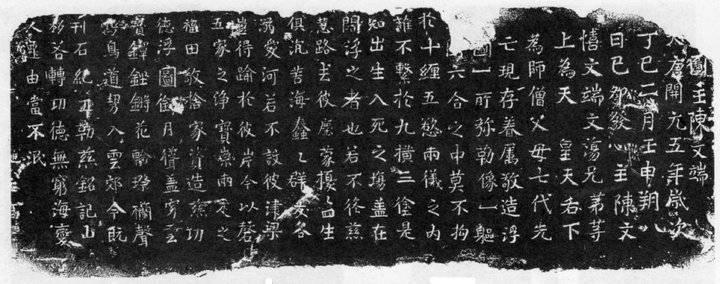 圖主陳文端
大唐開元五年歲次
丁巳二月壬申朔八
日己卯發心主陳文
憘文端文蕩兄弟等
上為天皇天后下
為師僧父母七代先
亡現存眷屬敬造浮
圖一所弥勒像一軀
六合之中莫不拘
於十纏五慾兩儀之內
誰不繫於九橫二塗是
知出生入死之塲盖在
閻浮之者也若不脩慈
慧路去彼塵蒙擾生
俱沉苦海蠢々群各
溺愛河若不設彼津梁
豈得踰於彼岸今以磬
五家之淨寶兩之
福田敬捨家資造茲功
德浮圖餘月脩盖至
寶鐸鏗鏘花聲
鳥道入雲郊今既
刊石紀功勒茲銘記山
移谷轉功德無窮海變
人遷由當不泯